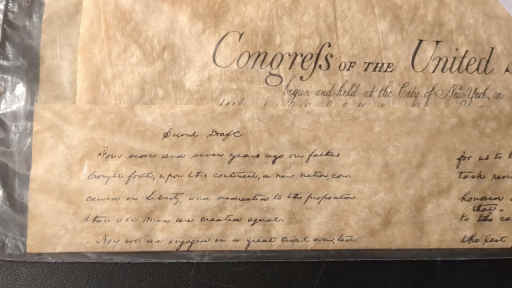 Congreſs OF THE United S
begun and held at the City of New York, o
Second Draft
Four score and seven years ago our fathers
brought forth, upon this continent, a new nation, con
ceived in Liberty, and dedicated to the proposition
that all men are created equal.
Now we are engaged in a great civil war, test
for us to b
took
honored
that
to the ca
the last